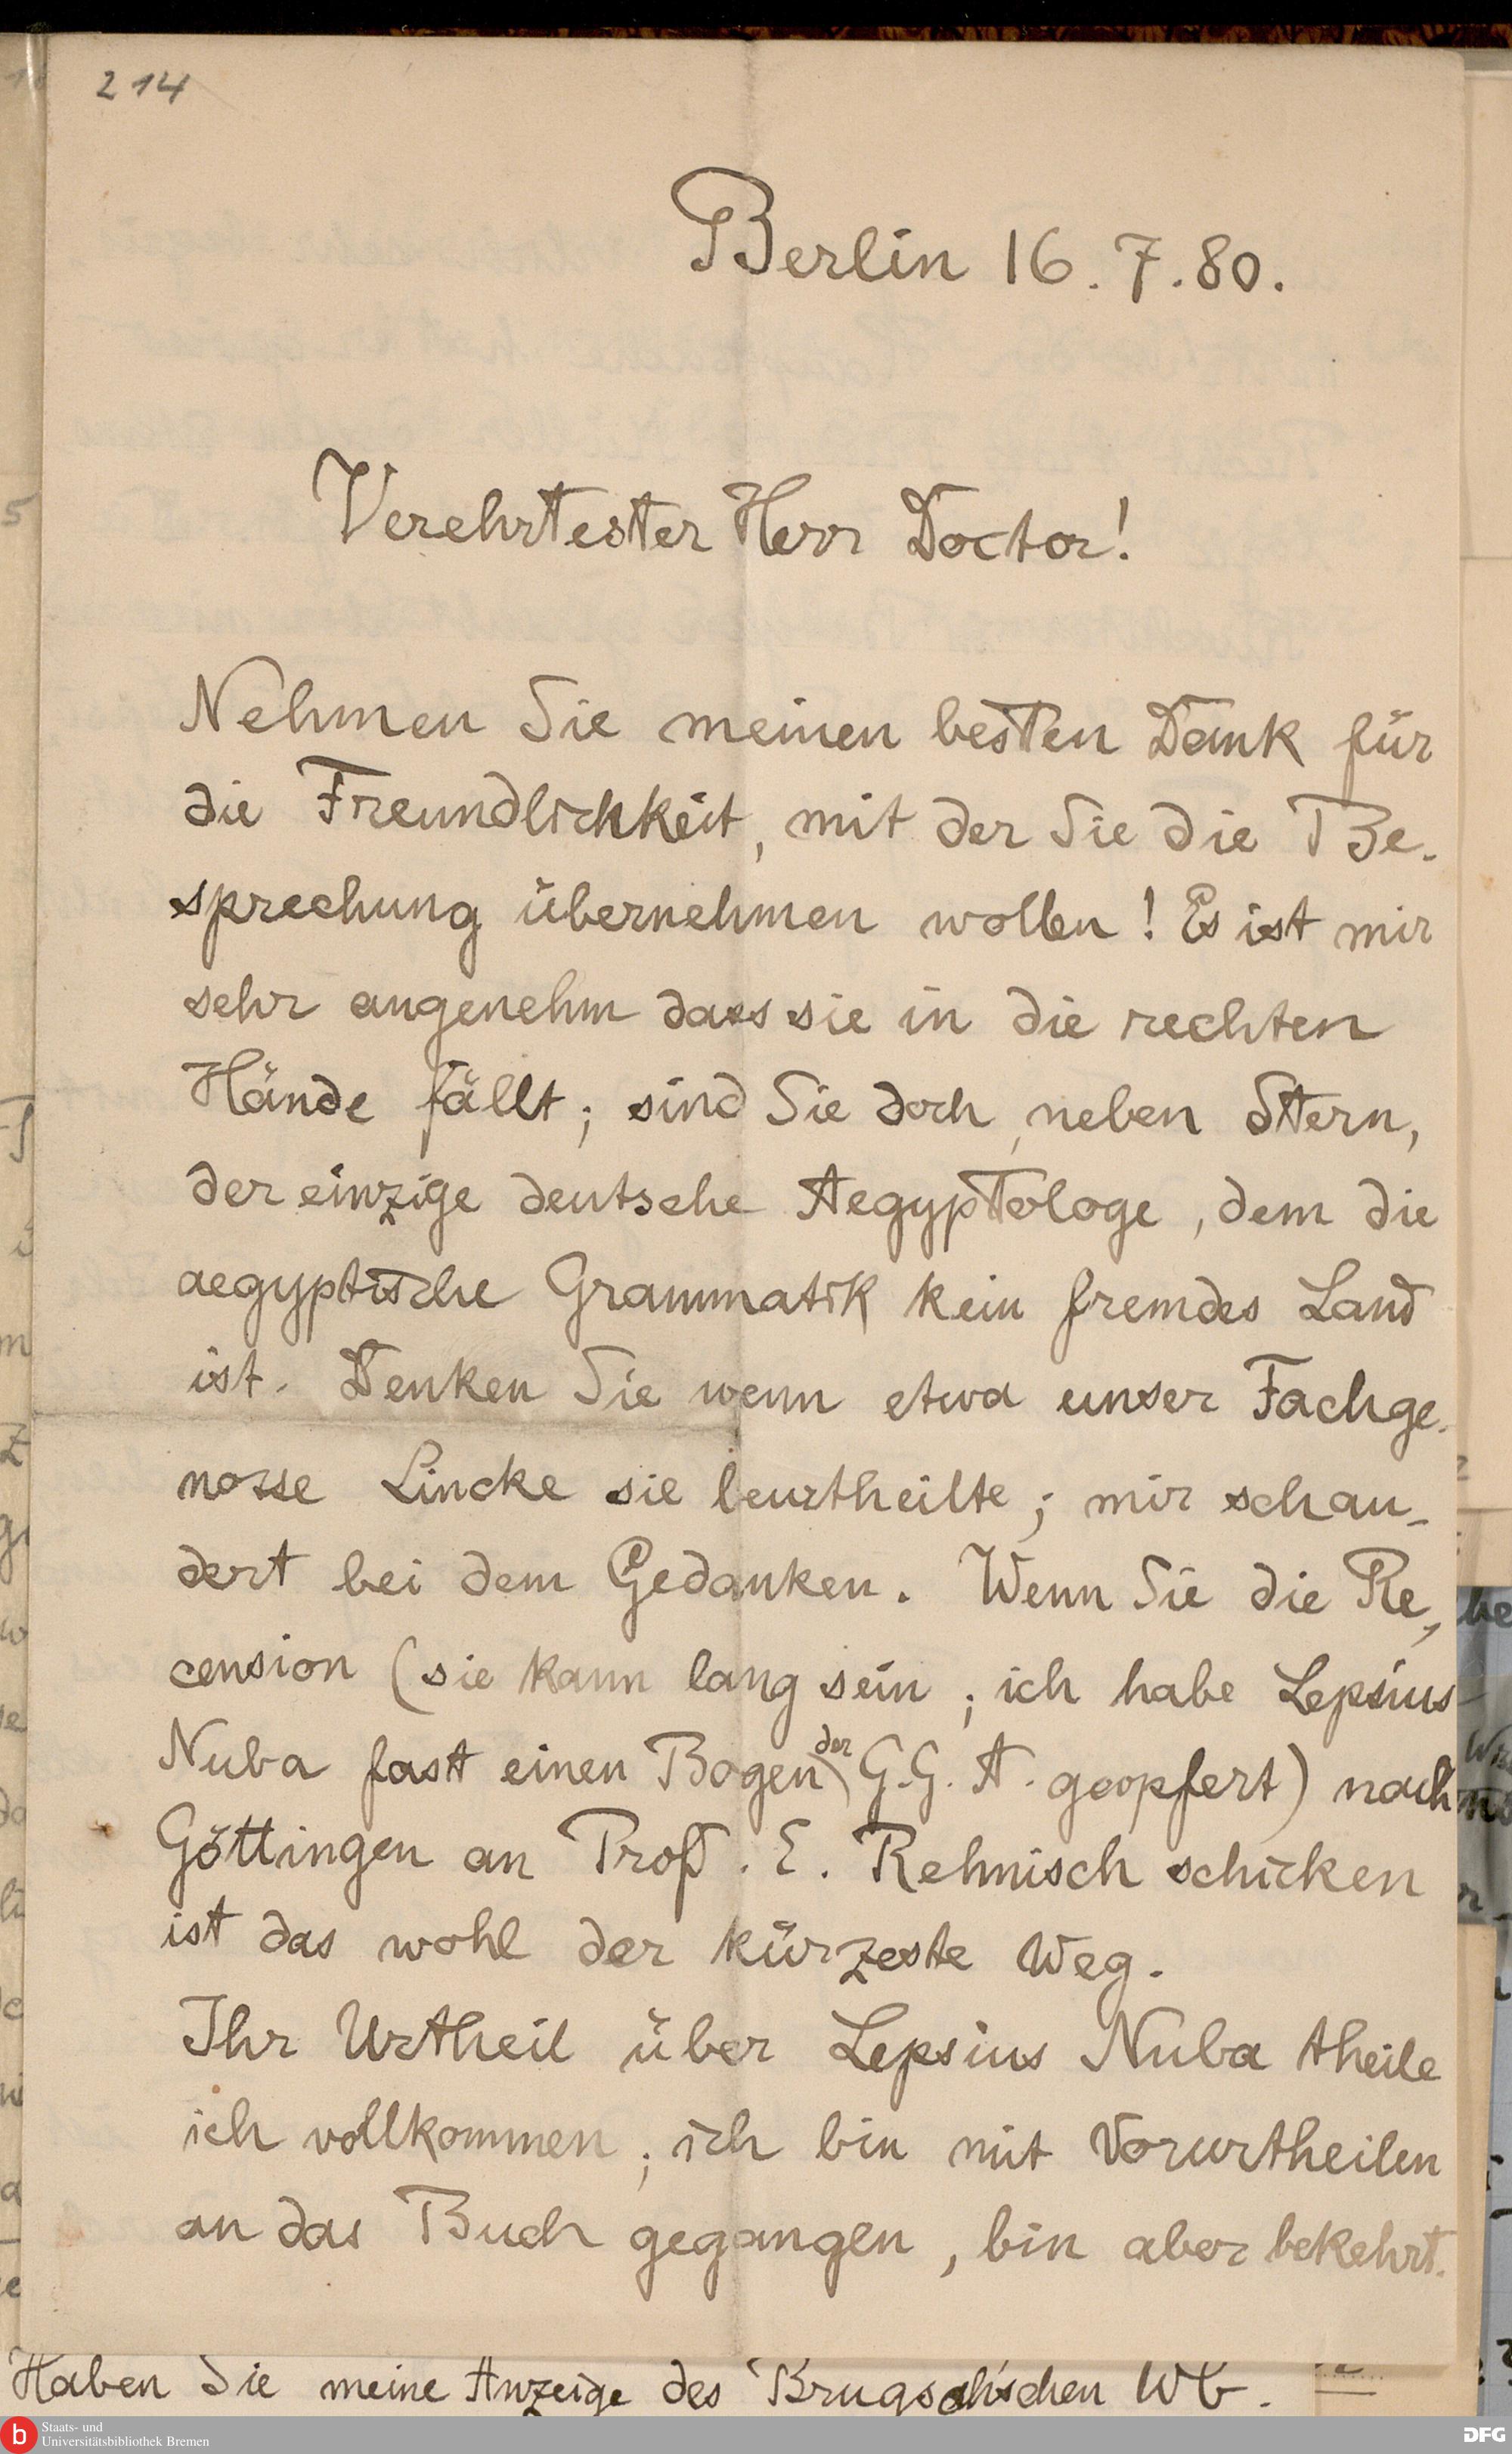 214
Berlin 16.7.80.
Verehrtester Herr Doctor!
Nehmen Sie meinen besten Dank für
die Freundlichkeit, mit der Sie die Be-
sprechung übernehmen wollen! Es ist mir
sehr angenehm dass sie in die rechten
Hände fällt; sind Sie doch, neben Stern,
der einzige deutsche Aegyptologe, dem die
aegyptische Grammatik kein fremdes Land
ist. Denken Sie wenn etwa unser Fachge-
nosse Lincke sie beurtheilte; mir schau-
dert bei dem Gedanken. Wenn Sie die Re-
cension (sie kann lang sein; ich habe Lepsius
Nuba fast einen Bogen der G.G.A. geopfert) nach
Göttingen an Prof. E. Rehnisch schicken
ist das wohl der kürzeste Weg.
Ihr Urtheil über Lepsius Nuba theile
ich vollkommen; ich bin mit Vorurtheilen
an das Buch gegangen, bin aber bekehrt.
Haben Sie meine Anzeige des Brugschischen Wb.
Staats- und
Universitätsbibliothek Bremen
DFG